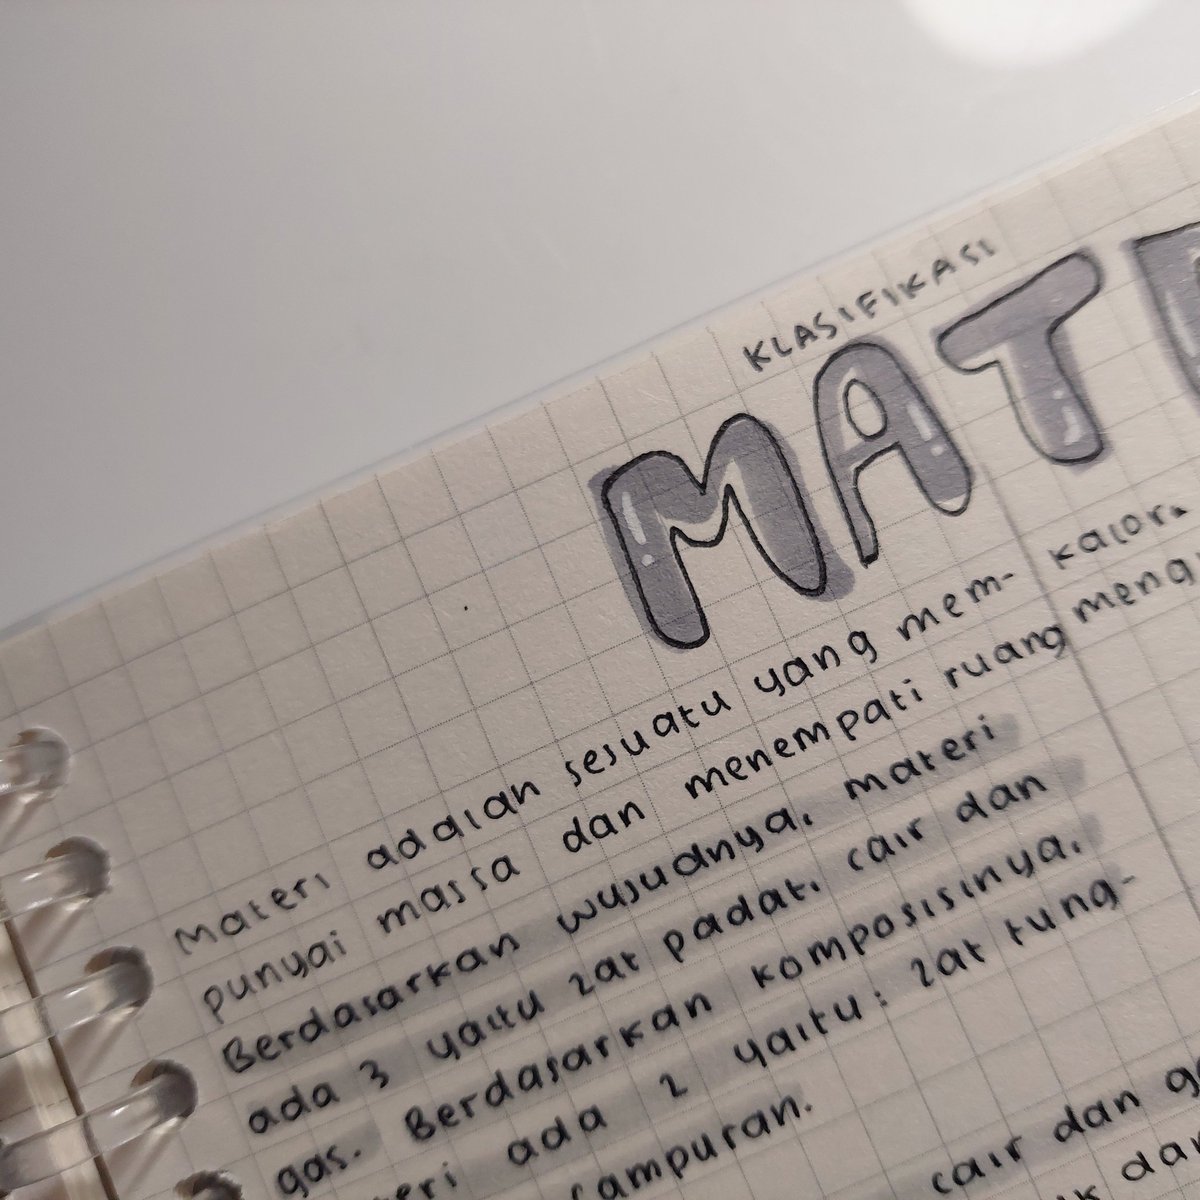 KLASIFIKASI
MATE
Materi adalah sesuatu yang mem-
punyai massa dan menempati ruang
Berdasarkan wujudnya, materi
ada 3 yaitu zat padat, cair dan
gas. Berdasarkan komposisinya,
eri ada 2 yaitu: zat tung-
campuran.
kalor.
meng
cair dan ga
k dan